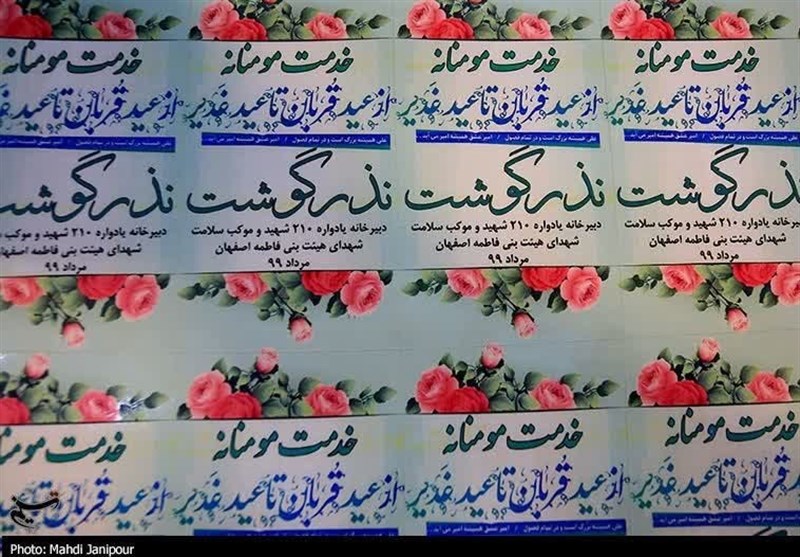 خدمت مومنانه
از عید قربان تا عید غدیر
علی همیشه بزرگ است و در تمام فصول / امیر عشق همیشه امیر می آید..
نذر گوشت
دبیرخانه یادواره ۲۱۰ شهید و موکب سلامت
شهدای هیئت بنی فاطمه اصفهان
مرداد ۹۹
خدمت مومنانه
از عید قربان تا عید غدیر
علی همیشه بزرگ است و در تمام فصول / امیر عشق همیشه امیر می آید..
نذر گوشت
دبیرخانه یادواره ۲۱۰ شهید و موکب سلامت
شهدای هیئت بنی فاطمه اصفهان
مرداد ۹۹
خدمت مومنانه
از عید قربان تا عید غدیر
علی همیشه بزرگ است و در تمام فصول / امیر عشق همیشه امیر می آید..
نذر گوشت
دبیرخانه یادواره ۲۱۰ شهید و موکب سلامت
شهدای هیئت بنی فاطمه اصفهان
مرداد ۹۹
خدمت مومنانه
از عید قربان تا عید
نذر گوشت
دبیرخانه یادواره ۲۱۰ شهید و موکب سلامت
شهدای هیئت بنی فاطمه اصفهان
مرداد ۹۹
خدمت مومنانه
از عید قربان تا عید غدیر
خدمت مومنانه
از عید قربان تا عید غدیر
علی همیشه بزرگ است و در تمام فصول / امیر عشق همیشه امیر می آید..
خدمت مومنانه
از عید قربان تا عید غدیر
خدمت مومنانه
از عید قربان تا عید
تسنیم
Photo: Mahdi Janipour